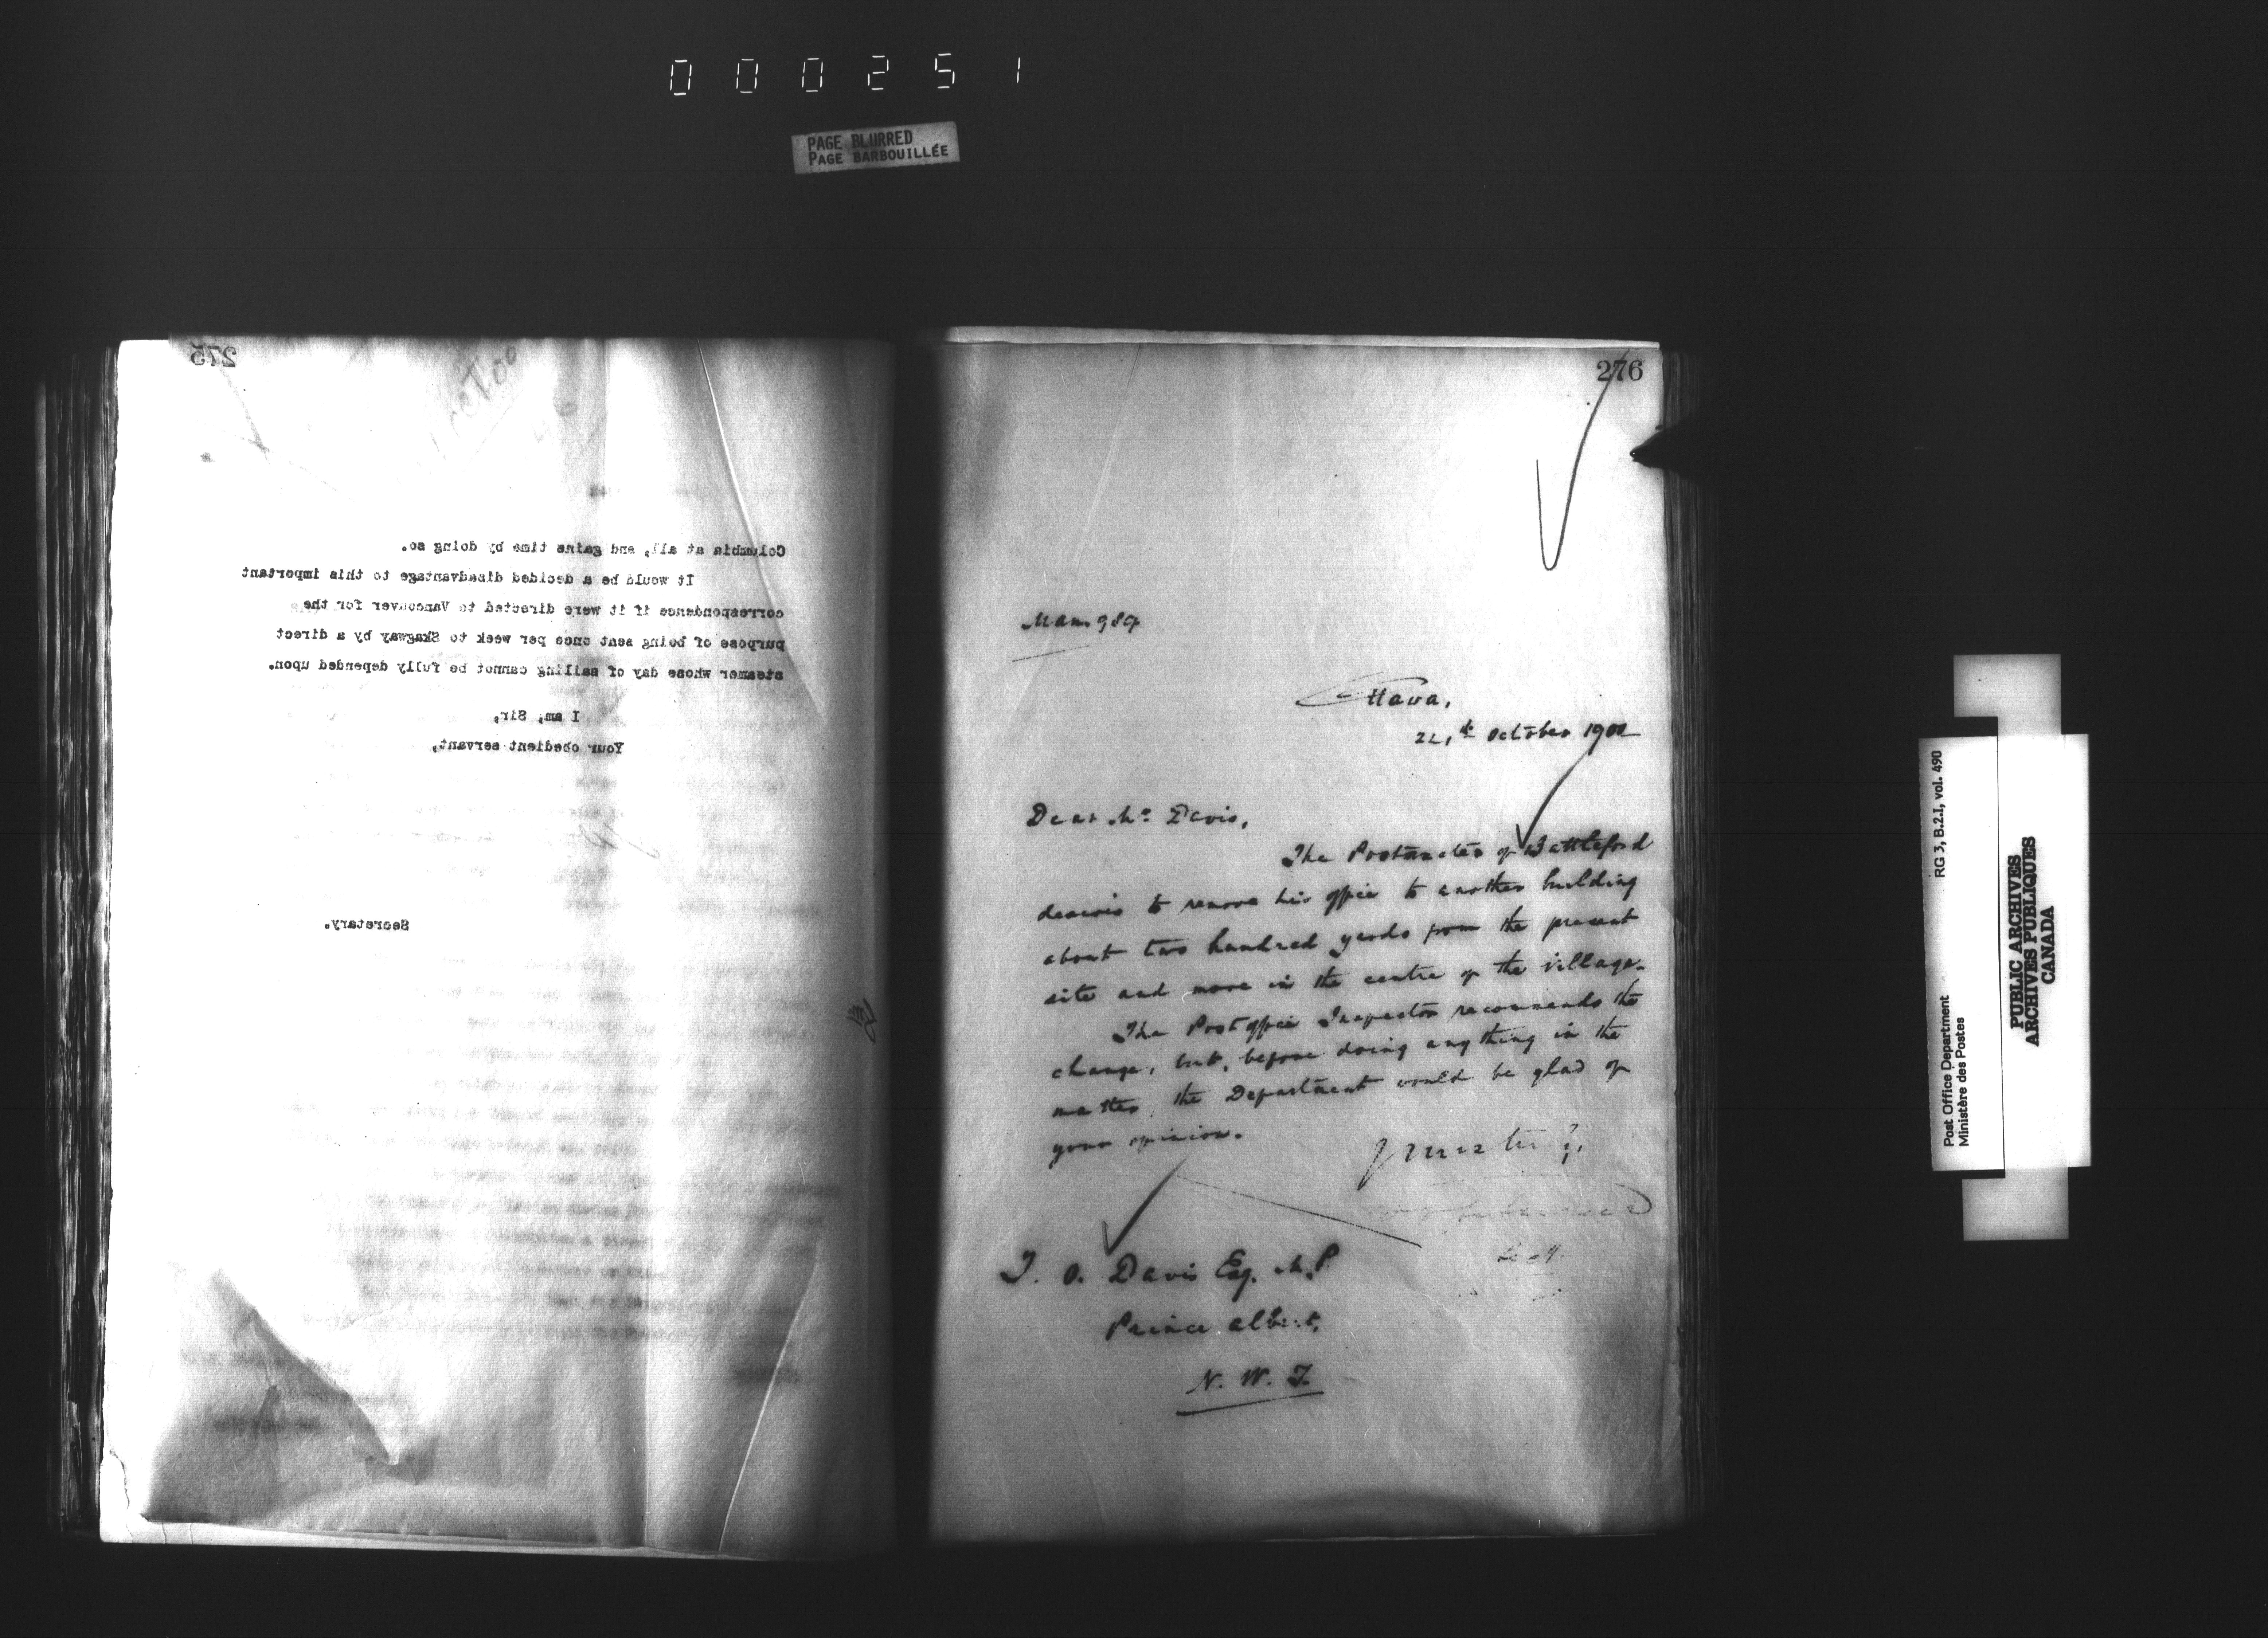 000251
PAGE BLURRED
PAGE BARBOUILLÉE
275
Columbia at all, and gains time by doing so.
It would be a decided disadvantage to this important
correspondence if it were directed to Vancouver for the
purpose of being sent once per week to Skagway by a direct
steamer whose day of sailing cannot be fully depended upon.
I am, Sir,
Your obedient servant,
Secretary.
276
Man. 989
Ottawa,
October 190
Dear Mr Davis,
The Postmaster of Battleford
desires to remove his office to another building
about two hundred yards from the present
site and more in the centre of the village.
The Post Office Inspector recommends the
change, but, before doing anything in the
matter, the Department would be glad of
your opinion.
Yours truly,
T. O. Davis Esq. M.P.
Prince Albert,
N. W. T.
RG 3, B.2.I, vol. 490
Post Office Department
Ministère des Postes
PUBLIC ARCHIVES
ARCHIVES PUBLIQUES
CANADA